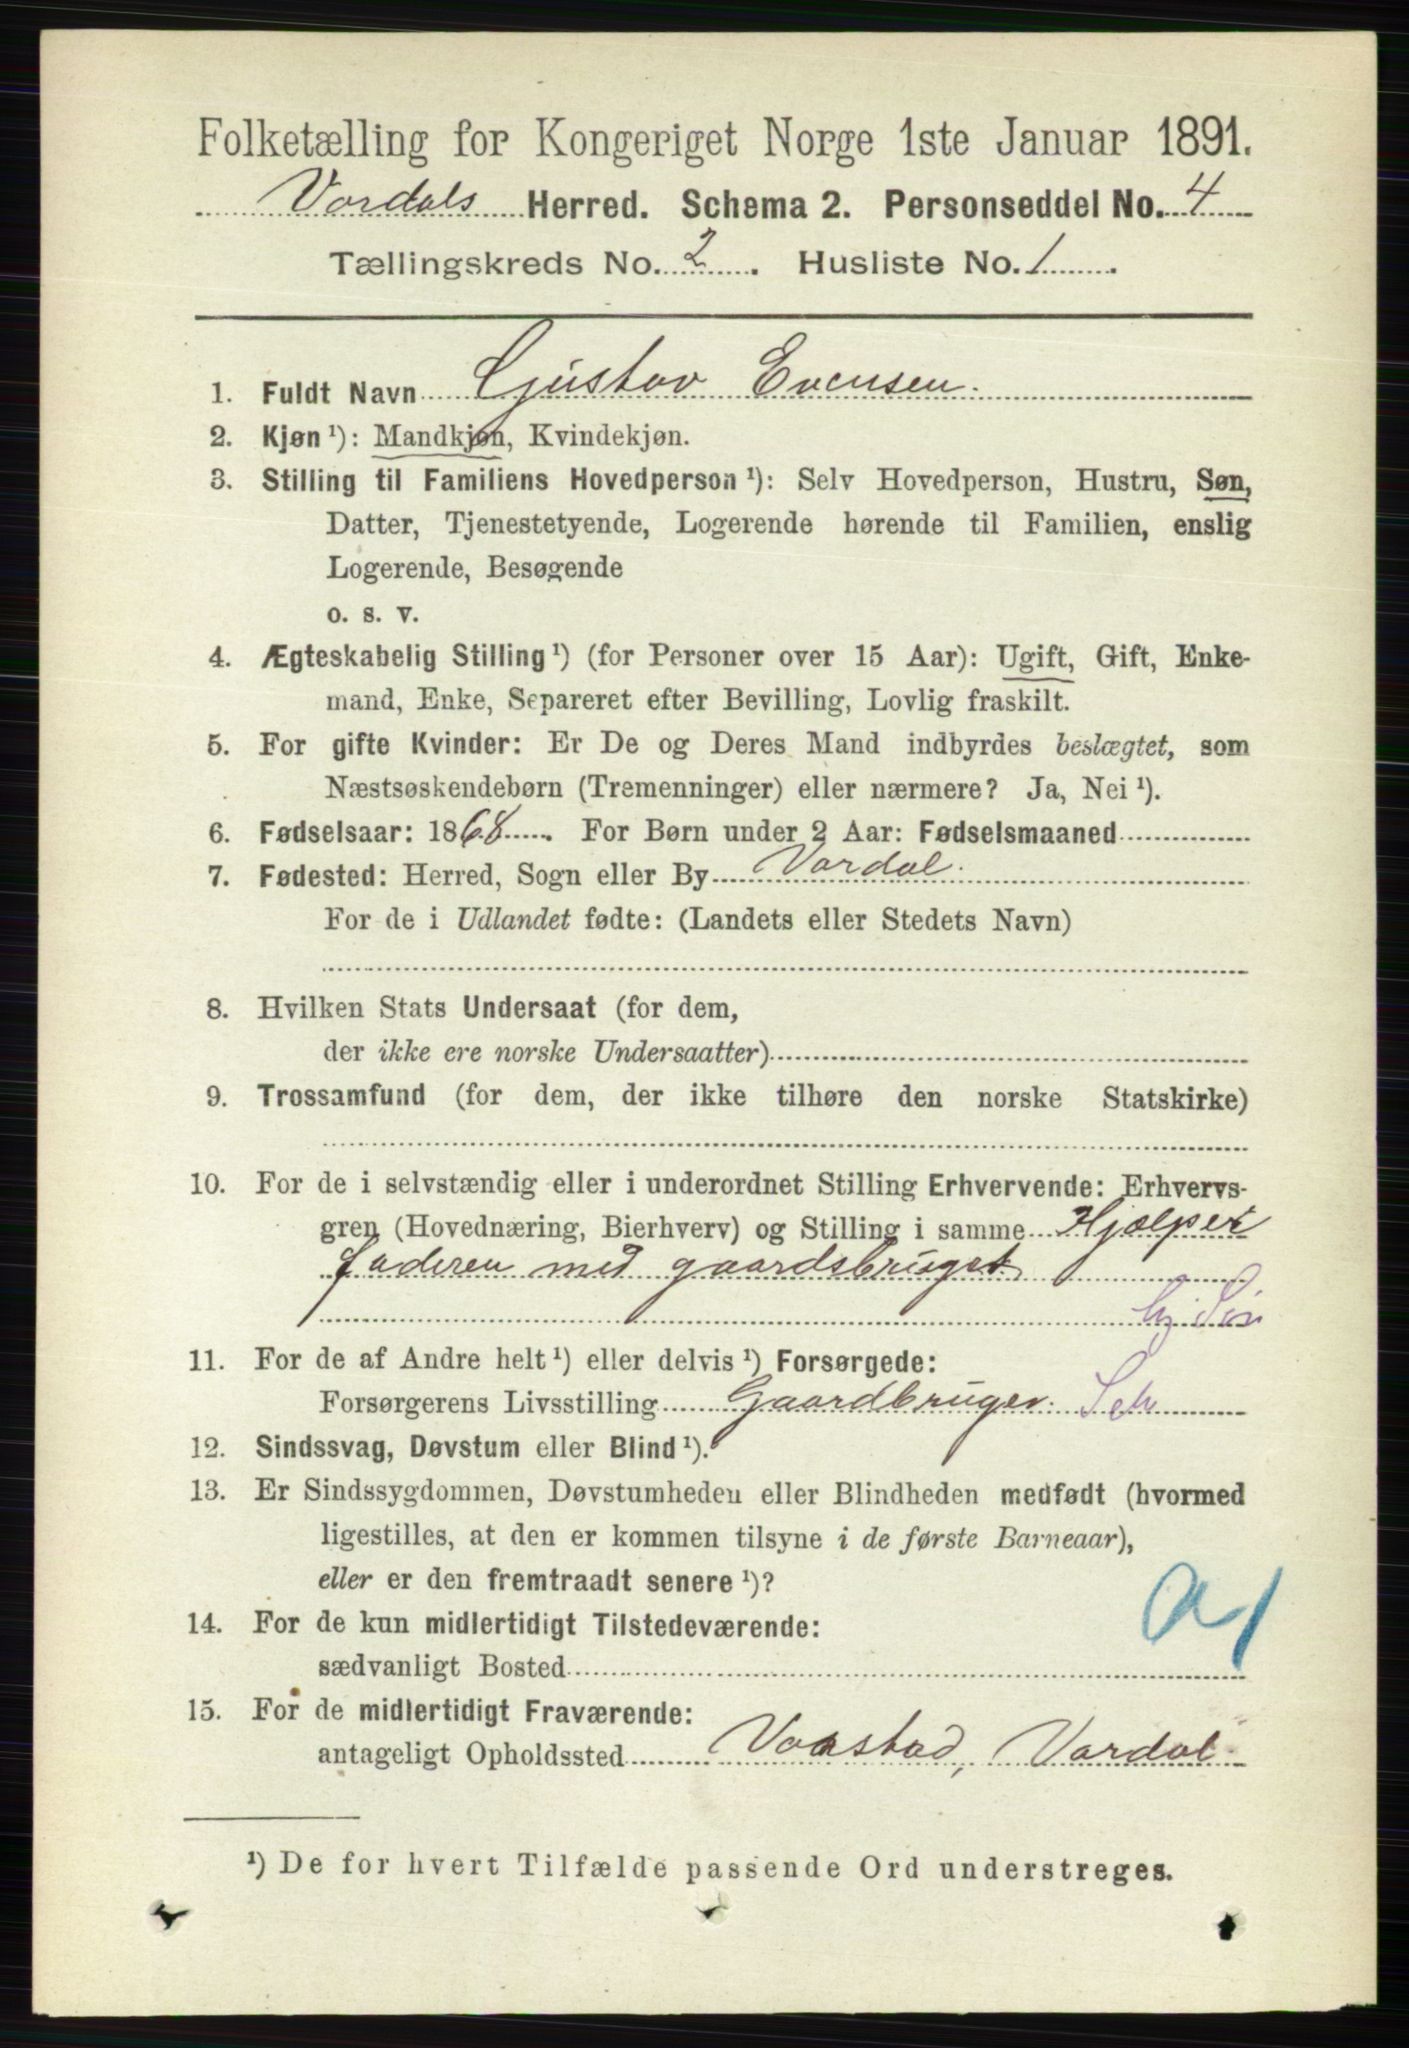 Folketælling for Kongeriget Norge 1ste Januar 1891.
Vardals Herred. Schema 2. Personseddel No. 4
Tællingskreds No. 2. Husliste No. 1.
1. Fuldt Navn Gustav Evensen.
2. Kjøn ¹): Mandkjøn, Kvindekjøn.
3. Stilling til Familiens Hovedperson ¹): Selv Hovedperson, Hustru, Søn,
Datter, Tjenestetyende, Logerende hørende til Familien, enslig
Logerende, Besøgende
o. s. v.
4. Ægteskabelig Stilling ¹) (for Personer over 15 Aar): Ugift, Gift, Enke-
mand, Enke, Separeret efter Bevilling, Lovlig fraskilt.
5. For gifte Kvinder: Er De og Deres Mand indbyrdes beslægtet, som
Næstsøskendebørn (Tremenninger) eller nærmere? Ja, Nei ¹).
6. Fødselsaar: 1868. For Børn under 2 Aar: Fødselsmaaned
7. Fødested: Herred, Sogn eller By Vardal.
For de i Udlandet fødte: (Landets eller Stedets Navn)
8. Hvilken Stats Undersaat (for dem,
der ikke ere norske Undersaatter)
9. Trossamfund (for dem, der ikke tilhøre den norske Statskirke)
10. For de i selvstændig eller i underordnet Stilling Erhvervende: Erhvervs-
gren (Hovednæring, Bierhverv) og Stilling i samme Hjælper
faderen med gaardsbruget
hj. Søn
11. For de af Andre helt ¹) eller delvis ¹) Forsørgede:
Forsørgerens Livsstilling Gaardbruger.
12. Sindssvag, Døvstum eller Blind ¹).
13. Er Sindssygdommen, Døvstumheden eller Blindheden medfødt (hvormed
ligestilles, at den er kommen tilsyne i de første Barneaar),
eller er den fremtraadt senere ¹)?
14. For de kun midlertidigt Tilstedeværende:
sædvanligt Bosted
15. For de midlertidigt Fraværende:
antageligt Opholdssted Vaastad, Vardal
¹) De for hvert Tilfælde passende Ord understreges.